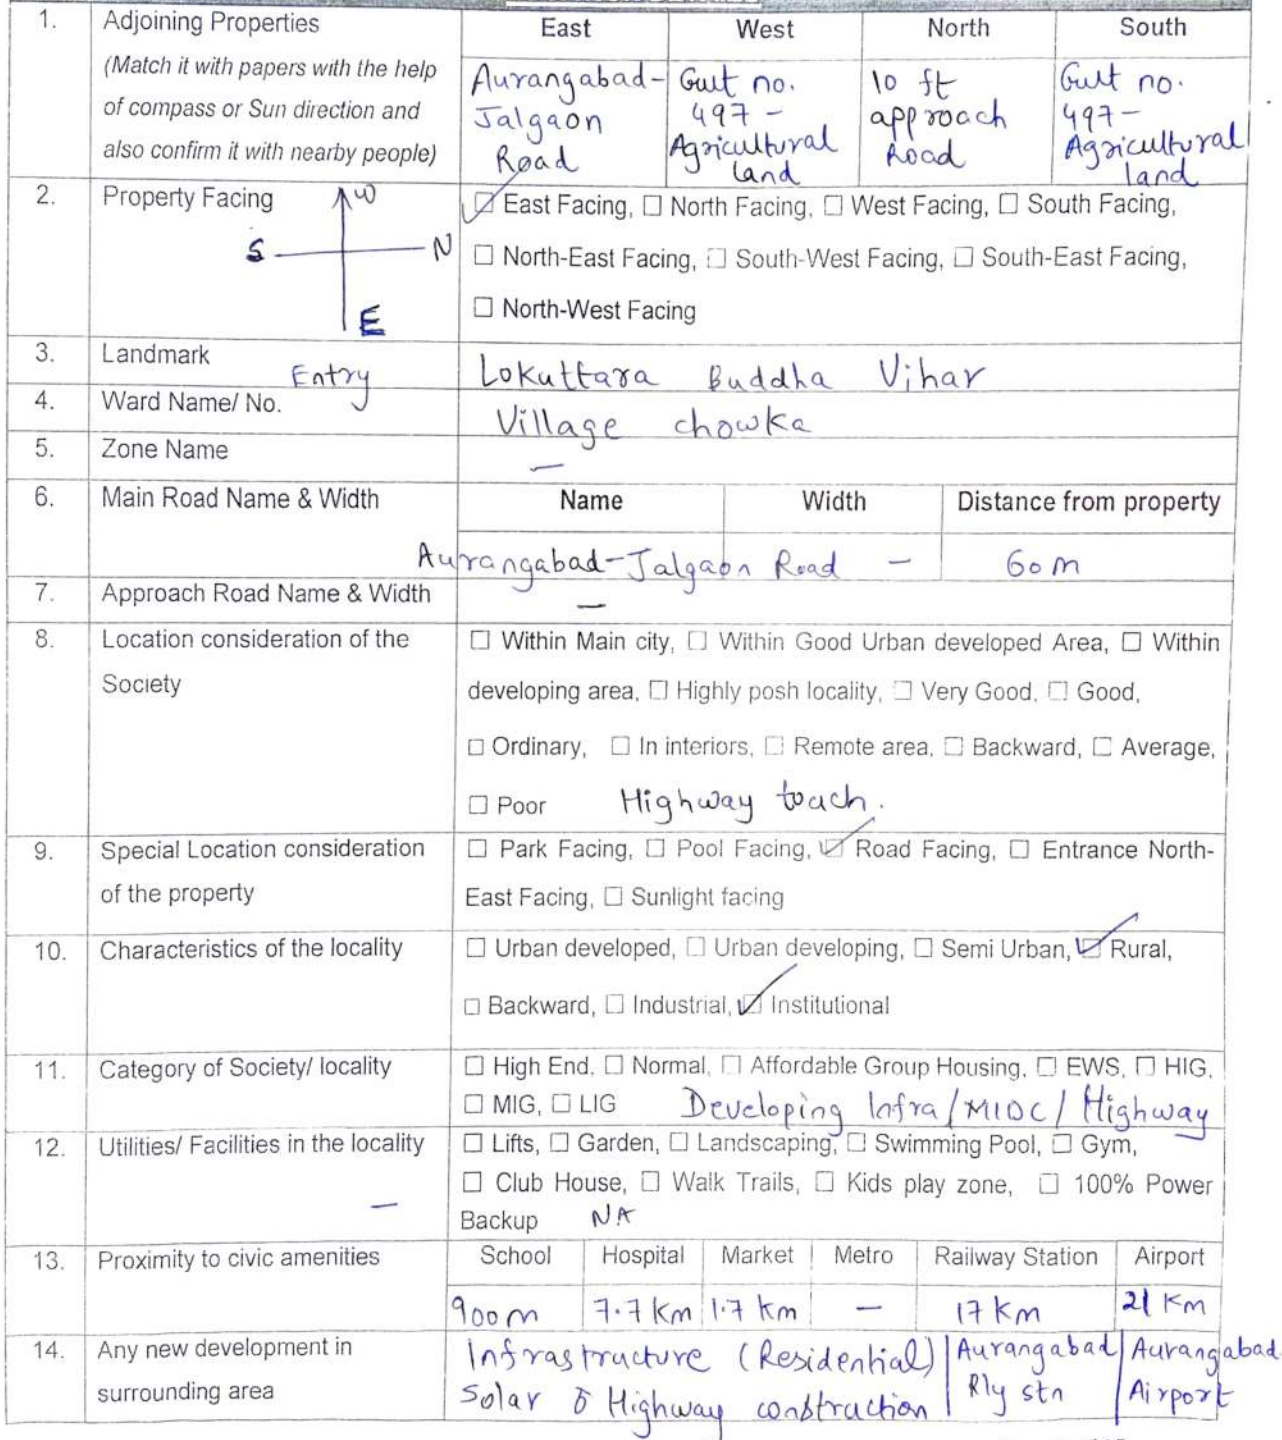 1. Adjoining Properties East West North South
(Match it with papers with the help of compass or Sun direction and also confirm it with nearby people)
Aurangabad-
Jalgaon
Road
Gut no.
497 -
Agricultural
land
10 ft
approach
Road
Gut no.
497 -
Agricultural
land
2. Property Facing
W
S N
E
☑ East Facing, ☐ North Facing, ☐ West Facing, ☐ South Facing,
☐ North-East Facing, ☐ South-West Facing, ☐ South-East Facing,
☐ North-West Facing
3. Landmark Lokuttara Buddha Vihar
Entry
4. Ward Name/ No. Village chowka
5. Zone Name —
6. Main Road Name & Width Name Width Distance from property
Aurangabad-Jalgaon Road — 60 m
7. Approach Road Name & Width —
8. Location consideration of the
Society
☐ Within Main city, ☐ Within Good Urban developed Area, ☐ Within
developing area, ☐ Highly posh locality, ☐ Very Good, ☐ Good,
☐ Ordinary, ☐ In interiors, ☐ Remote area, ☐ Backward, ☐ Average,
☐ Poor Highway touch.
9. Special Location consideration
of the property
☐ Park Facing, ☐ Pool Facing, ☑ Road Facing, ☐ Entrance North-
East Facing, ☐ Sunlight facing
10. Characteristics of the locality
☐ Urban developed, ☐ Urban developing, ☐ Semi Urban, ☑ Rural,
☐ Backward, ☐ Industrial, ☑ Institutional
11. Category of Society/ locality
☐ High End, ☐ Normal, ☐ Affordable Group Housing, ☐ EWS, ☐ HIG,
☐ MIG, ☐ LIG Developing Infra/MIDC/Highway
12. Utilities/ Facilities in the locality
—
☐ Lifts, ☐ Garden, ☐ Landscaping, ☐ Swimming Pool, ☐ Gym,
☐ Club House, ☐ Walk Trails, ☐ Kids play zone, ☐ 100% Power
Backup NA
13. Proximity to civic amenities School Hospital Market Metro Railway Station Airport
900m 7.7 km 1.7 km — 17 km 21 km
14. Any new development in
surrounding area
Infrastructure (Residential)
Solar & Highway construction
Aurangabad
Rly stn
Aurangabad
Airport